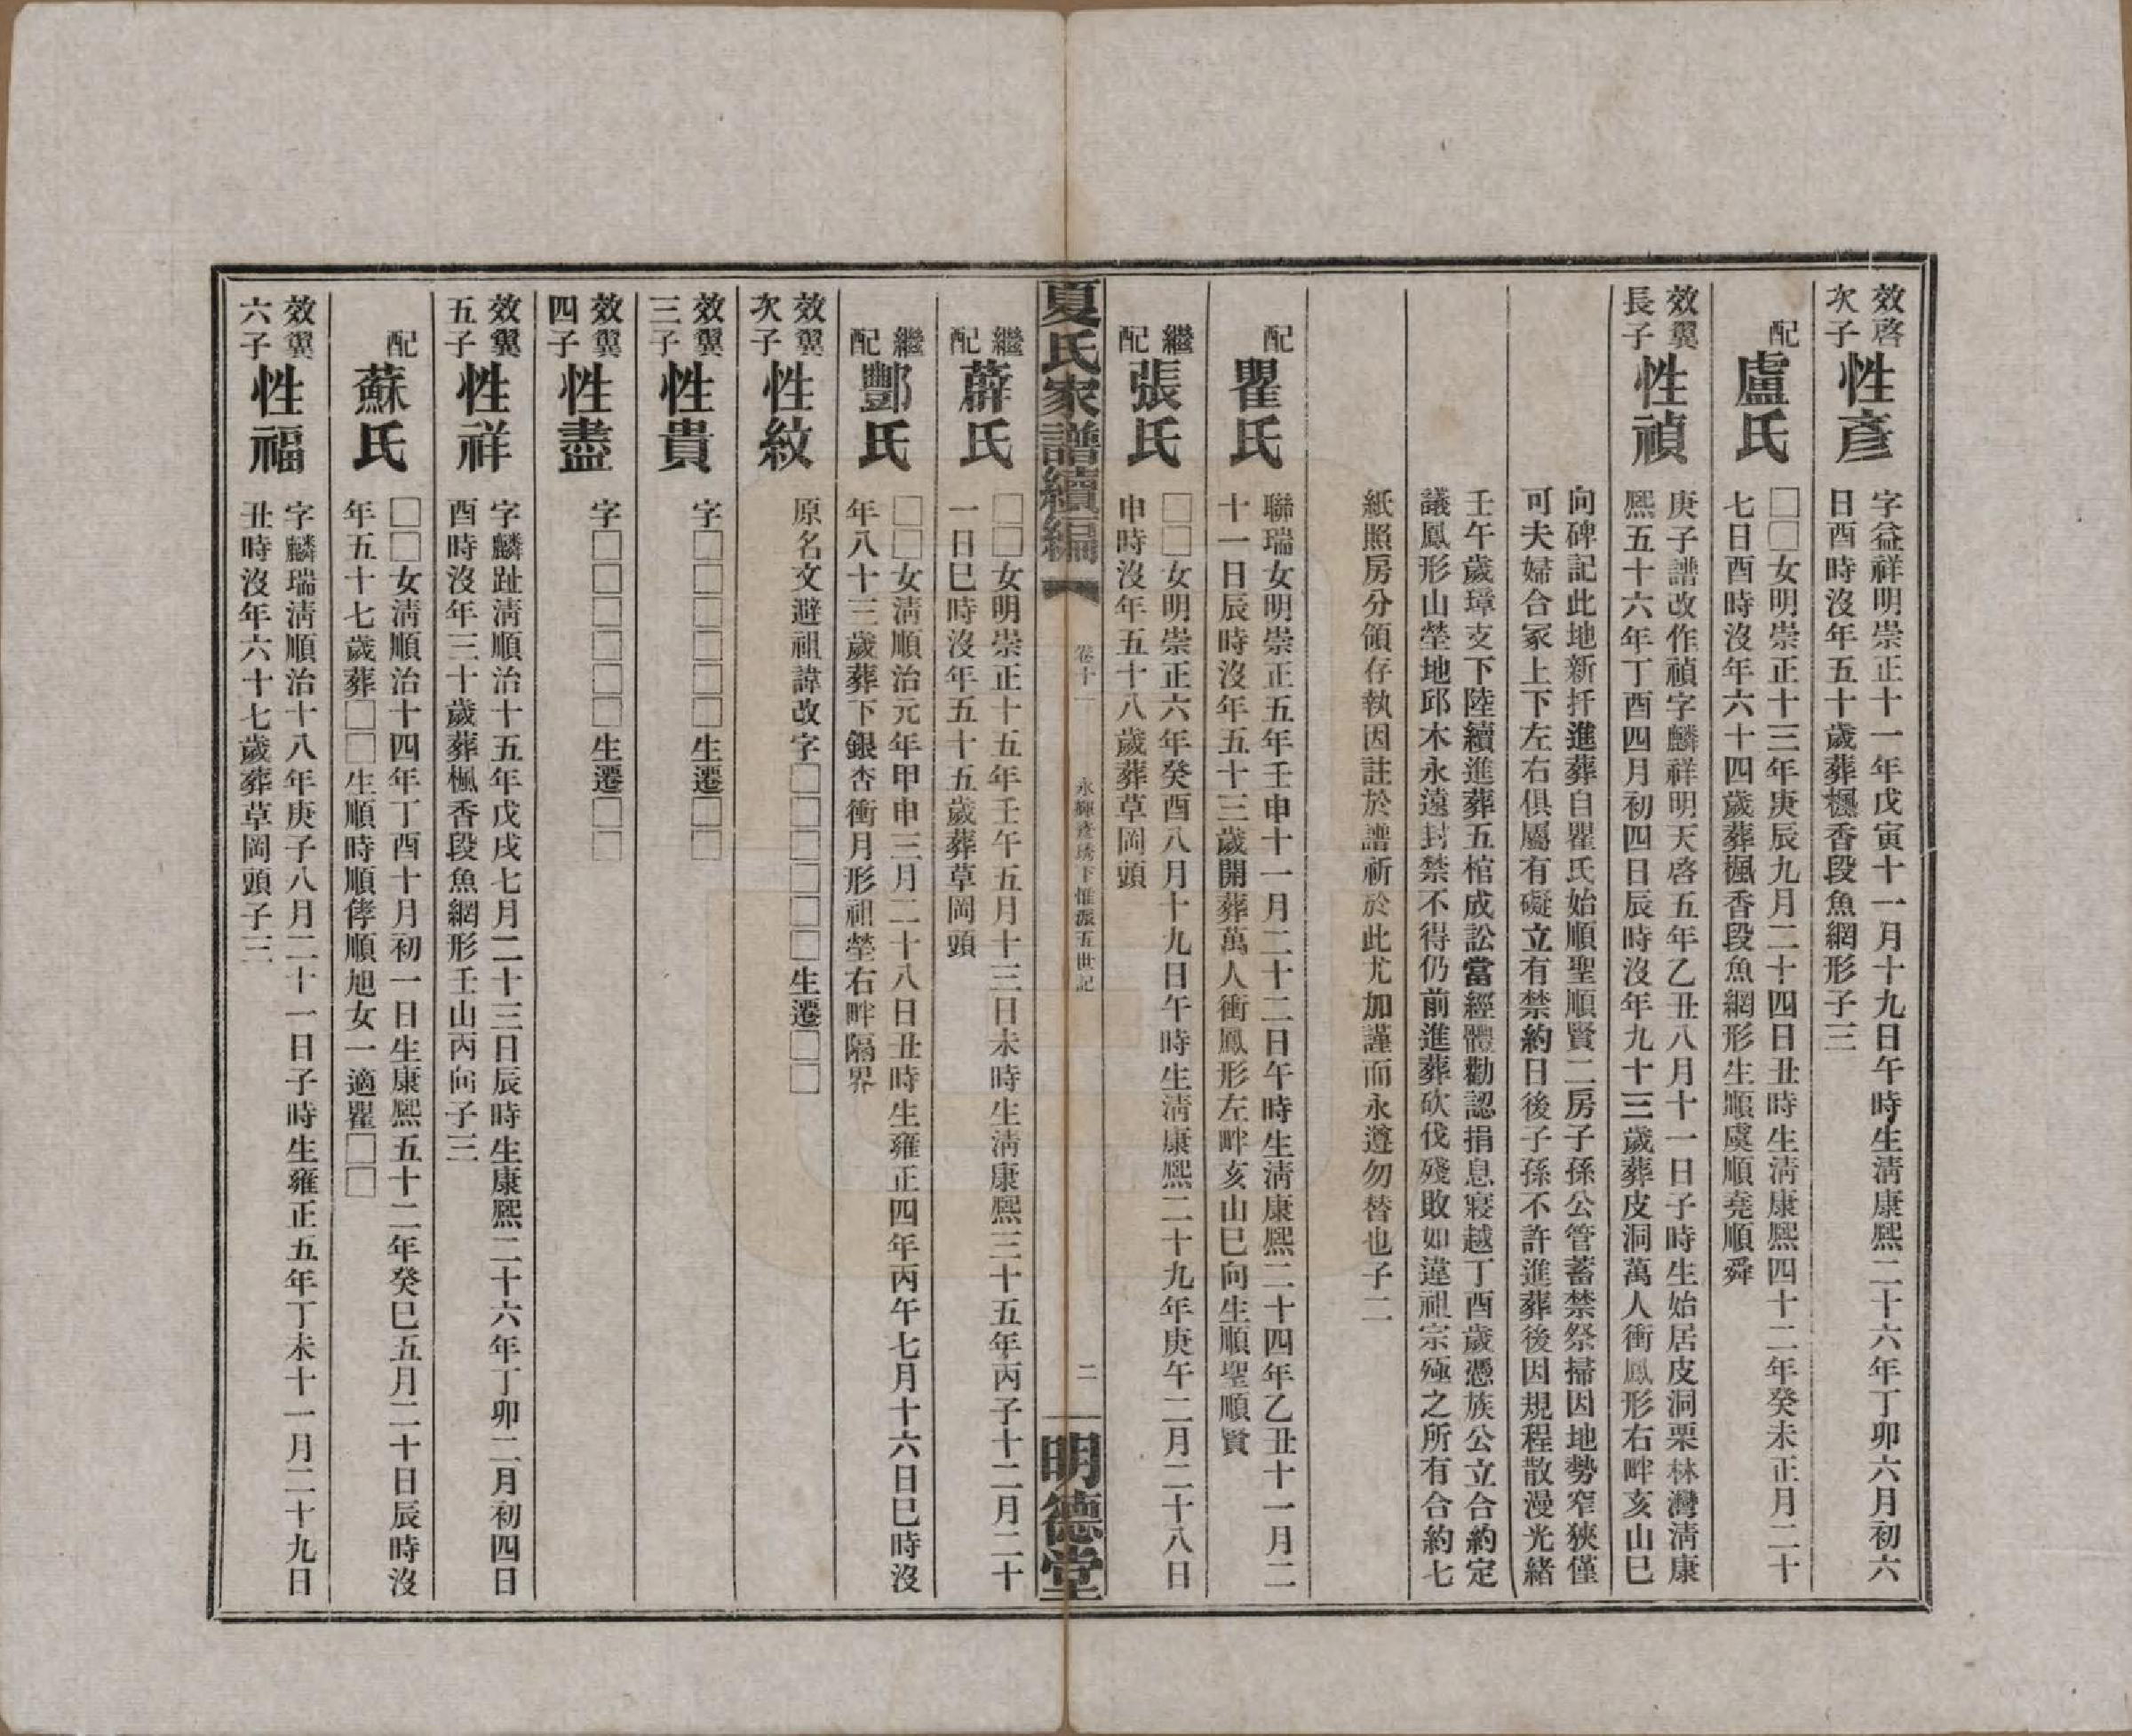 效啓
次子
性彥
字益祥明崇正十一年戊寅十一月十九日午時生淸康熙二十六年丁卯六月初六
日酉時沒年五十歲葬楓香段魚網形子三
配
盧氏
□□女明崇正十三年庚辰九月二十四日丑時生淸康熙四十二年癸未正月二十
七日酉時沒年六十四歲葬楓香段魚網形生順虞順堯順舜
效翼
長子
性禎
庚子譜改作禎字麟祥明天啓五年乙丑八月十一日子時生始居皮洞栗林灣淸康
熙五十六年丁酉四月初四日辰時沒年九十三歲葬皮洞萬人衝鳳形右畔亥山巳
向碑記此地新扦進葬自瞿氏始順聖順賢二房子孫公管蓄禁祭掃因地勢窄狹僅
可夫婦合冢上下左右俱屬有礙立有禁約日後子孫不許進葬後因規程散漫光緒
壬午歲璋支下陸續進葬五棺成訟當經體勸認捐息寢越丁酉歲憑族公立合約定
議鳳形山塋地邱木永遠封禁不得仍前進葬砍伐殘敗如違祖宗殛之所有合約七
紙照房分領存執因註於譜祈於此尤加謹而永遵勿替也子二
配
瞿氏
聯瑞女明崇正五年壬申十一月二十二日午時生淸康熙二十四年乙丑十一月二
十一日辰時沒年五十三歲開葬萬人衝鳳形左畔亥山巳向生順聖順賢
繼
配
張氏
□□女明崇正六年癸酉八月十九日午時生淸康熙二十九年庚午二月二十八日
申時沒年五十八歲葬草岡頭
夏氏家譜續編
卷十一
永輝彥琇下惟派五世記
二
明德堂
繼
配
薜氏
□□女明崇正十五年壬午五月十三日未時生淸康熙三十五年丙子十二月二十
一日巳時沒年五十五歲葬草岡頭
繼
配
酆氏
□□女淸順治元年甲申三月二十八日丑時生雍正四年丙午七月十六日巳時沒
年八十三歲葬下銀杏衝月形祖塋右畔隔界
效翼
次子
性紋
原名文避祖諱改字□□□□□□生遷□□
效翼
三子
性貴
字□□□□□□生遷□□
效翼
四子
性盡
字□□□□□□生遷□□
效翼
五子
性祥
字麟趾淸順治十五年戊戌七月二十三日辰時生康熙二十六年丁卯二月初四日
酉時沒年三十歲葬楓香段魚網形壬山丙向子三
配
蘇氏
□□女淸順治十四年丁酉十月初一日生康熙五十二年癸巳五月二十日辰時沒
年五十七歲葬□□生順時順侾順旭女一適瞿□□
效翼
六子
性福
字麟瑞淸順治十八年庚子八月二十一日子時生雍正五年丁未十一月二十九日
丑時沒年六十七歲葬草岡頭子三